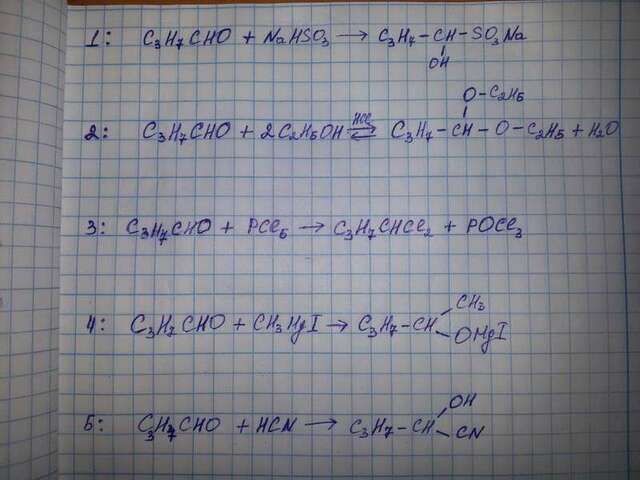 1: C3H7CHO + NaHSO3 → C3H7-CH-SO3Na
OH
O-C2H5
2: C3H7CHO + 2C2H5OH ⇌ HCl C3H7-CH-O-C2H5 + H2O
3: C3H7CHO + PCl5 → C3H7CHCl2 + POCl3
CH3
4: C3H7CHO + CH3MgI → C3H7-CH
OMgI
OH
5: C3H7CHO + HCN → C3H7-CH
CN